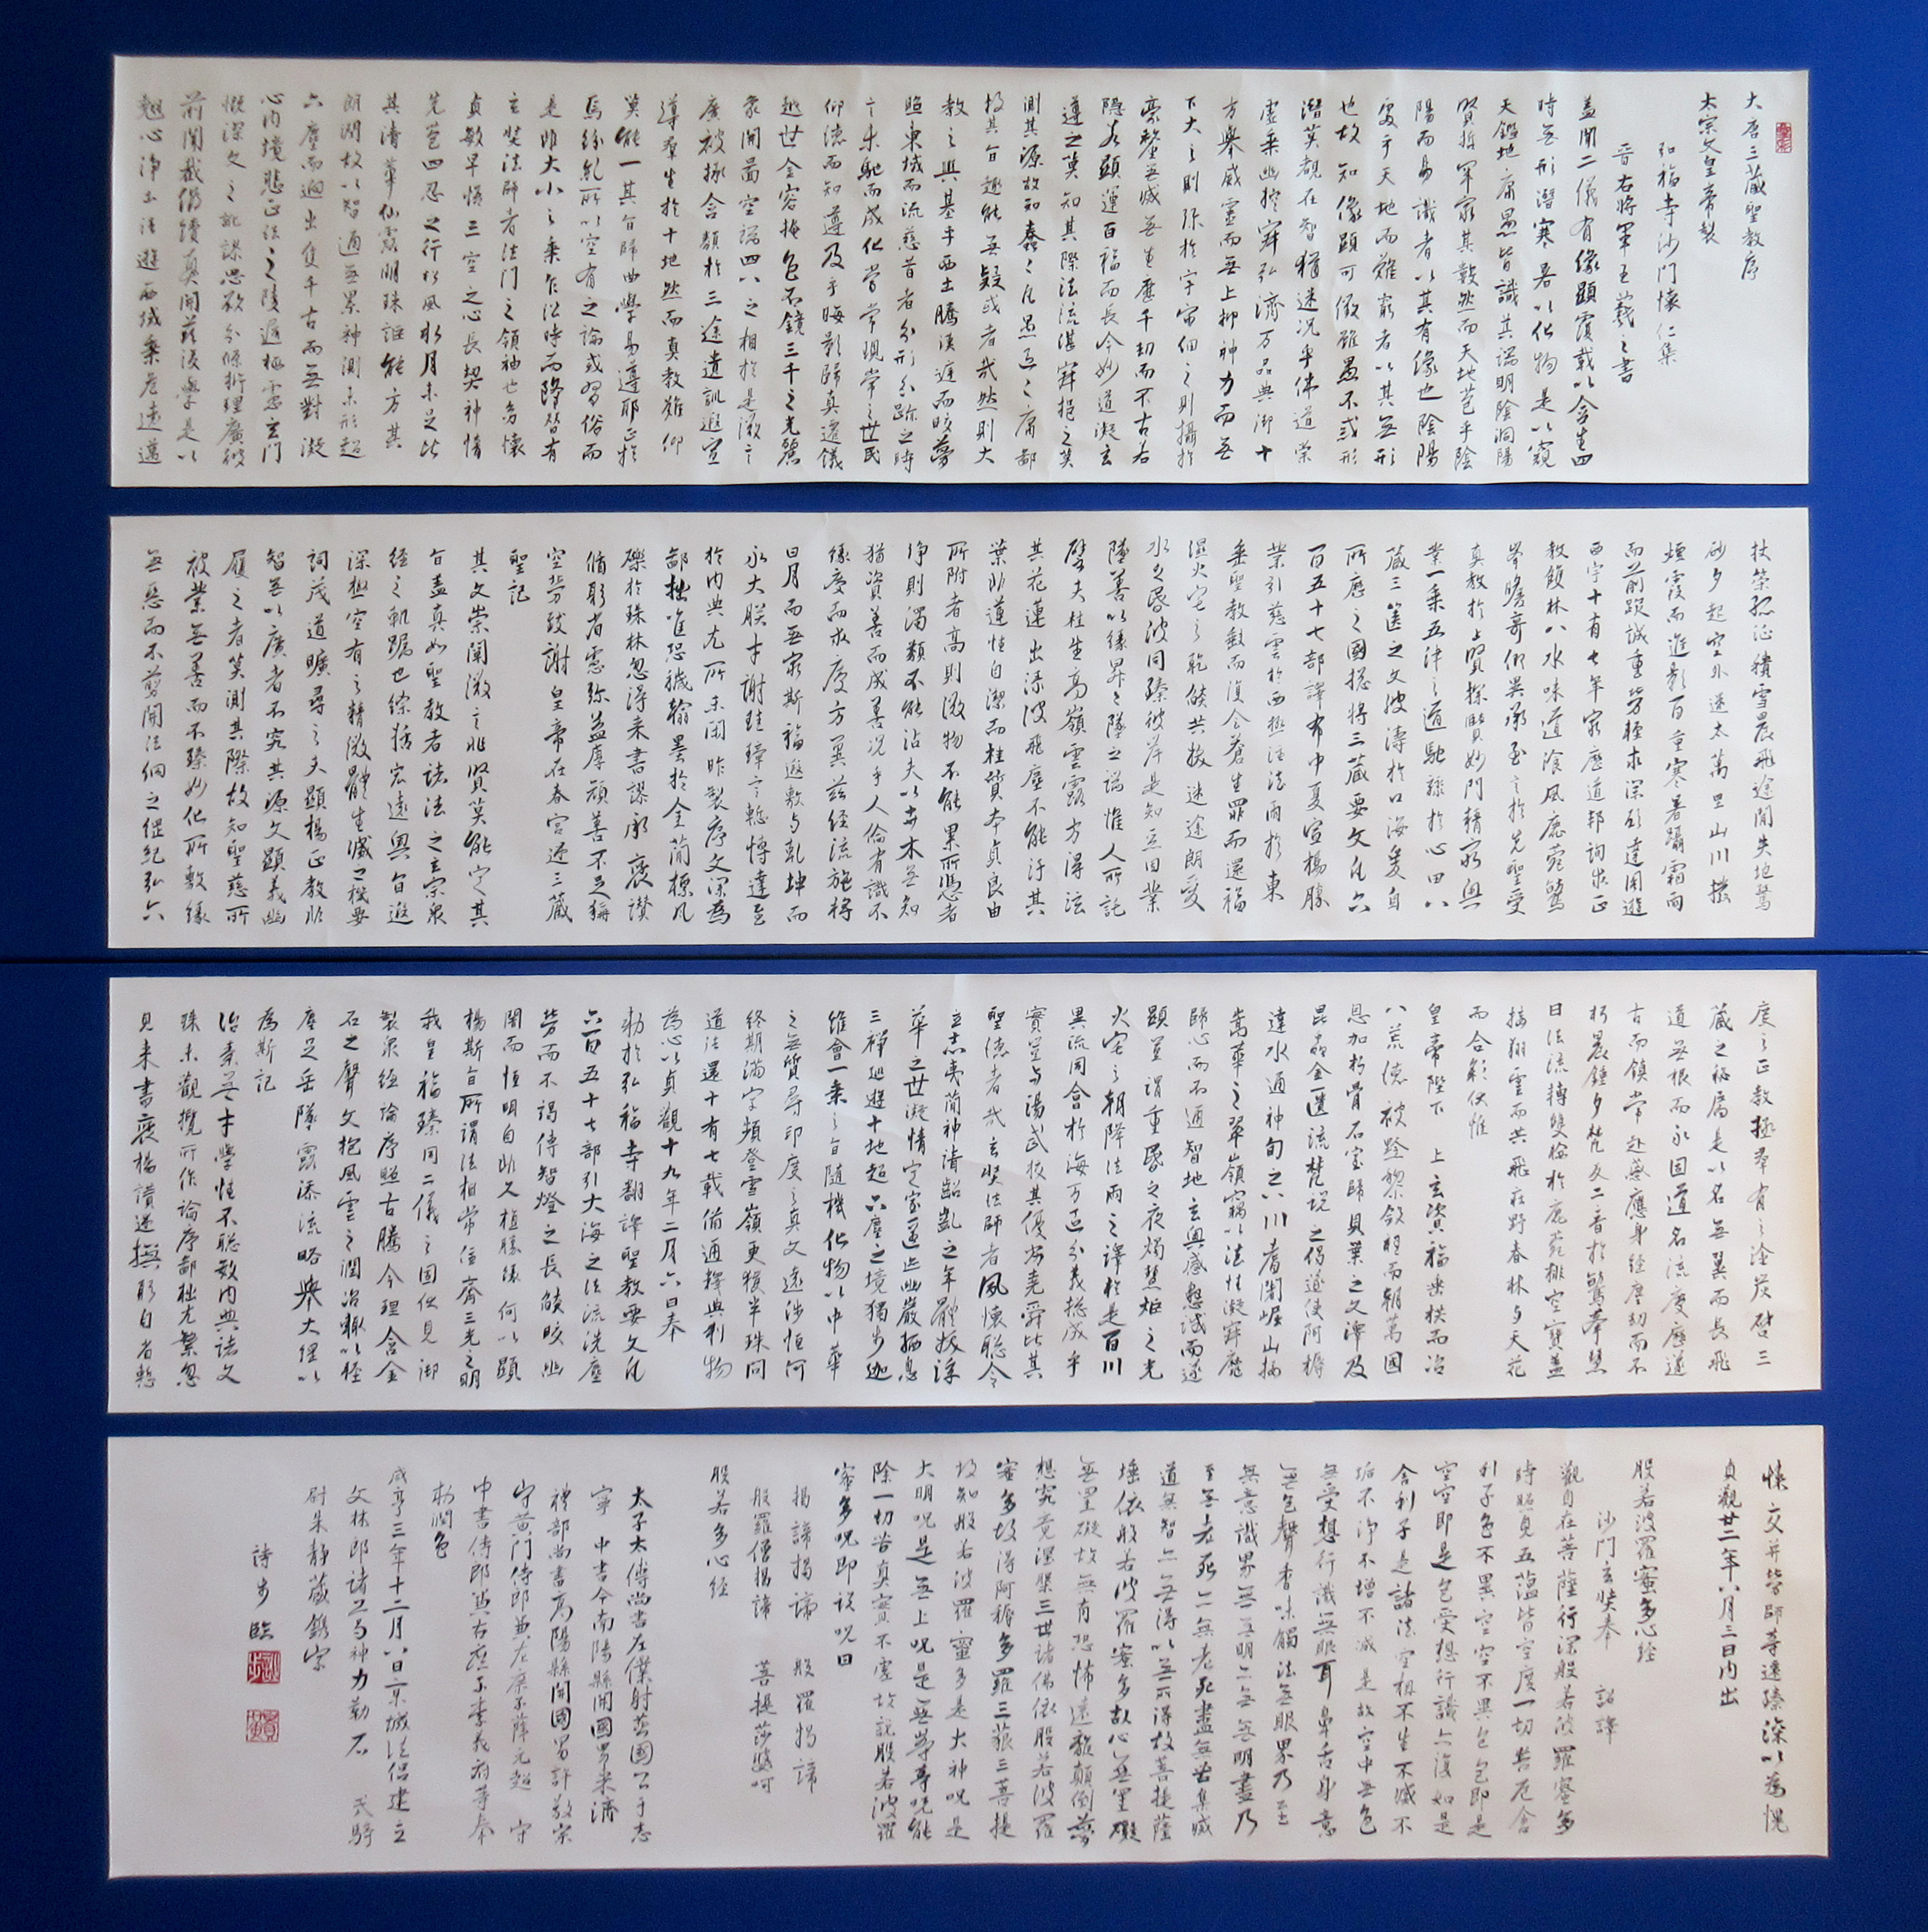 大唐三藏聖教序
太宗文皇帝製
弘福寺沙門懷仁集
晉右將軍王羲之書
蓋聞二儀有像顯覆載以含生四
時無形潛寒暑以化物是以窺
天鑑地庸愚皆識其端明陰洞陽
賢哲罕窮其數然而天地苞乎陰
陽而易識者以其有像也陰陽
處乎天地而難窮者以其無形
也故知像顯可徵雖愚不惑形
潛莫覩在智猶迷況乎佛道崇
虛乘幽控寂弘濟万品典御十
方舉威靈而無上抑神力而無
下大之則弥於宇宙細之則攝於
豪釐無滅無生歷千劫而不古若
隱若顯運百福而長今妙道凝玄
遵之莫知其際法流湛寂挹之莫
測其源故知蠢蠢凡愚區區庸鄙
投其旨趣能無疑或者哉然則大
教之興基乎西土騰漢庭而皎夢
照東域而流慈昔者分形分跡之時
言未馳而成化當常現常之世民
仰德而知遵及乎晦影歸真遷儀
越世金容掩色不鏡三千之光麗
象開圖空端四八之相於是微言
廣被拯含類於三途遺訓遐宣
導羣生於十地然而真教難仰
莫能一其旨歸曲學易遵耶正於
焉紛糺所以空有之論或習俗而
是非大小之乘乍沿時而隆替有
玄奘法師者法門之領袖也幼懷
貞敏早悟三空之心長契神情
先苞四忍之行松風水月未足比
其清華仙露明珠詎能方其
朗潤故以智通無累神測未形超
六塵而迥出隻千古而無對凝
心內境悲正法之陵遲栖慮玄門
慨深文之訛謬思欲分條析理廣彼
前聞截偽續真開茲後學是以
翹心淨土法遊西域乘危遠邁
扶策孤征積雪晨飛途間失地驚
砂夕起空外迷天萬里山川撥
煙霞而進影百重寒暑躡霜雨
而前蹤誠重勞輕求深願達周遊
西宇十有七年窮歷道邦詢求正
教雙林八水味道飡風鹿菀鷲
峯瞻奇仰異承至言於先聖受
真教於上賢探賾妙門精窮奧
業一乘五律之道馳驟於心田八
藏三篋之文波濤於口海爰自
所歷之國揔將三藏要文凡六
百五十七部譯布中夏宣揚勝
業引慈雲於西極注法雨於東
垂聖教缺而復全蒼生罪而還福
濕火宅之乾燄共拔迷途朗愛
水之昏波同臻彼岸是知惡因業
墜善以緣昇昇墜之端惟人所託
譬夫桂生高嶺雲露方得泫
其花蓮出淥波飛塵不能汙其
葉非蓮性自潔而桂質本貞良由
所附者高則微物不能累所憑者
淨則濁類不能沾夫以卉木無知
猶資善而成善況乎人倫有識不
緣慶而求慶方冀茲經流施將
日月而無窮斯福遐敷與乾坤而
永大朕才謝珪璋言慙博達至
於內典尤所未閑昨製序文深為
鄙拙唯恐穢翰墨於金簡標瓦
礫於珠林忽得來書謬承褒讚
循躬省慮弥益厚顏善不足稱
空勞致謝皇帝在春宮述三藏
聖記
其文崇闡微言非賢莫能定其
旨蓋真如聖教者諸法之玄宗眾
經之軌躅也綜括宏遠奧旨遐
深極空有之精微體生滅之機要
詞茂道曠尋之者不究其源文顯義幽
履之者莫測其際故知聖慈所
被業無善而不臻妙化所敷緣
無惡而不翦開法網之綱紀弘六
度之正教拯羣有之塗炭啓三
藏之秘扃是以名無翼而長飛
道無根而永固道名流慶歷遂
古而鎮常赴感應身經塵劫而不
朽晨鍾夕梵交二音於鷲峯慧
日法流轉雙輪於鹿菀排空寶蓋
接翔雲而共飛莊野春林與天花
而合彩伏惟
皇帝陛下 上玄資福垂拱而治
八荒德被黔黎斂衽而朝萬國
恩加朽骨石室歸貝葉之文澤及
昆蟲金匱流梵說之偈遂使阿耨
達水通神甸之八川耆闍崛山接
嵩華之翠嶺竊以法性凝寂靡
歸心而不通智地玄奧感懇誠而遂
顯豈謂重昏之夜燭慧炬之光
火宅之朝降法雨之澤於是百川
異流同會於海万區分義揔成乎
實豈與湯武校其優劣堯舜比其
聖德者哉玄奘法師者夙懷聰令
立志夷簡神清齠齔之年體拔浮
華之世凝情定室匿跡幽巖栖息
三禪巡遊十地超六塵之境獨步迦
維會一乘之旨隨機化物以中華
之無質尋印度之真文遠涉恒河
終期滿字頻登雪嶺更獲半珠問
道法還十有七載備通釋典利物
為心以貞觀十九年二月六日奉
勑於弘福寺翻譯聖教要文凡
六百五十七部引大海之法流洗塵
勞而不竭傳智燈之長燄皎幽
闇而恒明自非久植勝緣何以顯
揚斯旨所謂法相常住齊三光之明
我皇福臻同二儀之固伏見御
製眾經論序照古騰今理含金
石之聲文抱風雲之潤治輒以輕
塵足岳墜露添流略舉大綱以
為斯記
治素無才學性不聰敏內典諸文
殊未觀攬所作論序鄙拙尤繁忽
見來書褒揚讚述撫躬自省慙
悚交并勞師等遠臻深以為愧
貞觀廿二年八月三日內出
般若波羅蜜多心經
沙門玄奘奉 詔譯
觀自在菩薩行深般若波羅蜜多
時照見五蘊皆空度一切苦厄舍
利子色不異空空不異色色即是
空空即是色受想行識亦復如是
舍利子是諸法空相不生不滅不
垢不淨不增不減是故空中無色
無受想行識無眼耳鼻舌身意
無色聲香味觸法無眼界乃至
無意識界無無明亦無無明盡乃
至無老死亦無老死盡無苦集滅
道無智亦無得以無所得故菩提薩
埵依般若波羅蜜多故心無罣礙
無罣礙故無有恐怖遠離顛倒夢
想究竟涅槃三世諸佛依般若波羅
蜜多故得阿耨多羅三藐三菩提
故知般若波羅蜜多是大神呪是
大明呪是無上呪是無等等呪能
除一切苦真實不虛故說般若波羅
蜜多呪即說呪曰
揭諦揭諦 般羅揭諦
般羅僧揭諦 菩提莎婆呵
般若多心經
太子太傅尚書左僕射燕國公于志
寧 中書令南陽縣開國男來濟
禮部尚書高陽縣開國男許敬宗
守黃門侍郎兼左庶子薛元超 守
中書侍郎兼右庶子李義府等奉
勑潤色
咸亨三年十二月八日京城法侶建立
文林郎諸葛神力勒石 武騎
尉朱靜藏鐫字
詩步臨